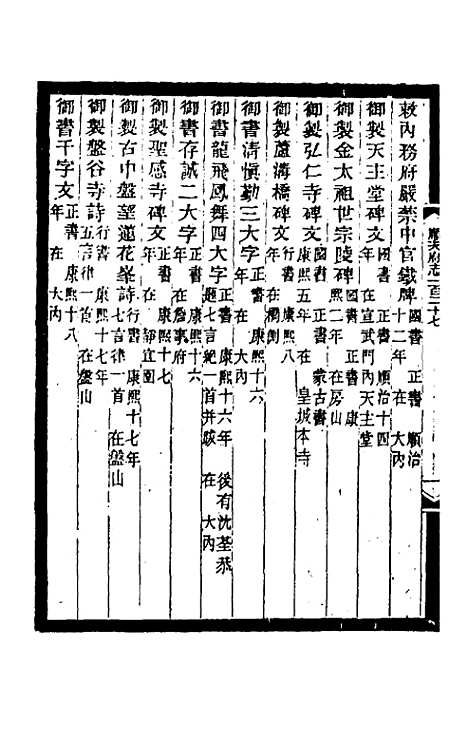 敕內務府嚴禁中官鐵牌國書 正書 順治十二年 在 大內
御製天主堂碑文國書 正書 順治十四年 在宣武門內天主堂
御製金太祖世宗陵碑國書 正書 康熙二年 在房山
御製弘仁寺碑文國書 正書 蒙古書 康熙五年 在 皇城本寺
御製蘆溝橋碑文行書 康熙八年 在橋側
御書清慎勤三大字正書 康熙十六年 在 大內
御書龍飛鳳舞四大字正書 康熙十六年 後有沈荃恭題七言絕一首并跋 在 大內
御書存誠二大字正書 康熙十六年 在詹事府
御製聖感寺碑文正書 康熙十七年 在 靜宜園
御製右中盤望蓮花峯詩行書 康熙十七年 七言律一首 在盤山
御製盤谷寺詩行書 康熙十七年 五言律一首 在盤山
御書千字文正書 康熙十八年 在 大內
順天府志一百二十七